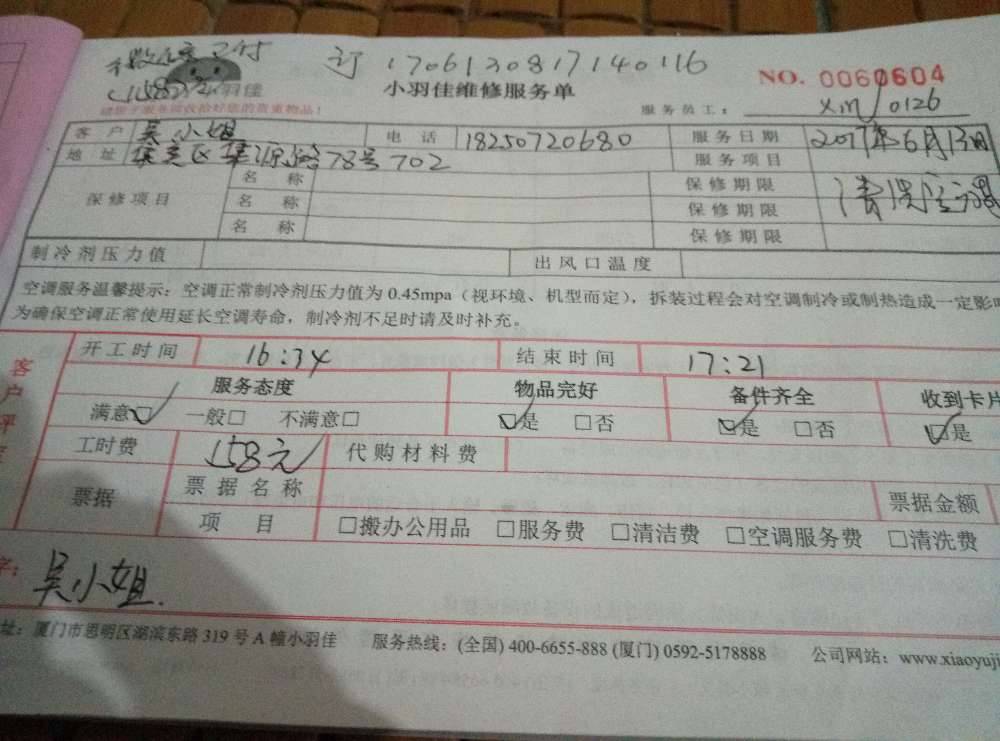 微信支付 订 170613081714016
158元 羽佳 小羽佳维修服务单 NO. 0060604
服务员工: xm/0126
客户 吴小姐 电话 18250720680 服务日期 2017年6月13日
地址 集美区集源路78号702 服务项目
保修项目 名称 保修期限 清洗空调
名称 保修期限
名称 保修期限
制冷剂压力值 出风口温度
空调服务温馨提示:空调正常制冷剂压力值为0.45mpa(视环境、机型而定),拆装过程会对空调制冷或制热造成一定影
为确保空调正常使用延长空调寿命,制冷剂不足时请及时补充。
开工时间 16:34 结束时间 17:21
客户评
服务态度 物品完好 备件齐全 收到卡片
满意☑ 一般□ 不满意□ ☑是 □否 ☑是 □否 ☑是
工时费 158元 代购材料费
票据 票据名称 票据金额
项目 □搬办公用品 □服务费 □清洁费 □空调服务费 □清洗费
字: 吴小姐
址:厦门市思明区湖滨东路319号A幢小羽佳 服务热线:(全国) 400-6655-888 (厦门) 0592-5178888 公司网站:www.xiaoyuji